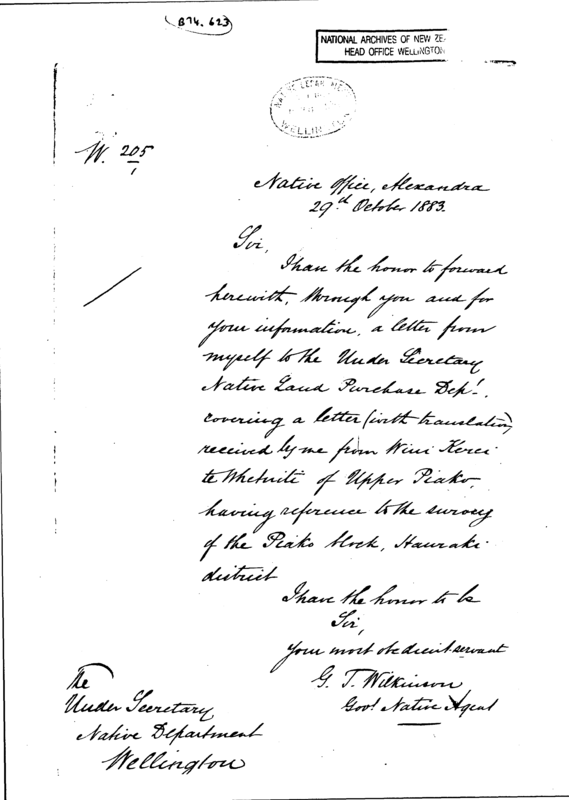 B74.623
NATIONAL ARCHIVES OF NEW ZE
HEAD OFFICE WELLINGTON
NATIVE DEPARTMENT
WELLINGTON
W. 205
1
Native Office, Alexandra
29th October 1883.
Sir,
I have the honor to forward
herewith, through you and for
your information, a letter from
myself to the Under Secretary
Native Land Purchase Dept.,
covering a letter (with translation)
received by me from Wini Kerei
te Whetuiti of Upper Piako,
having reference to the survey
of the Piako block, Hauraki
district
I have the honor to be
Sir,
Your most obedient servant
G. T. Wilkinson
Govt Native Agent
The
Under Secretary
Native Department
Wellington